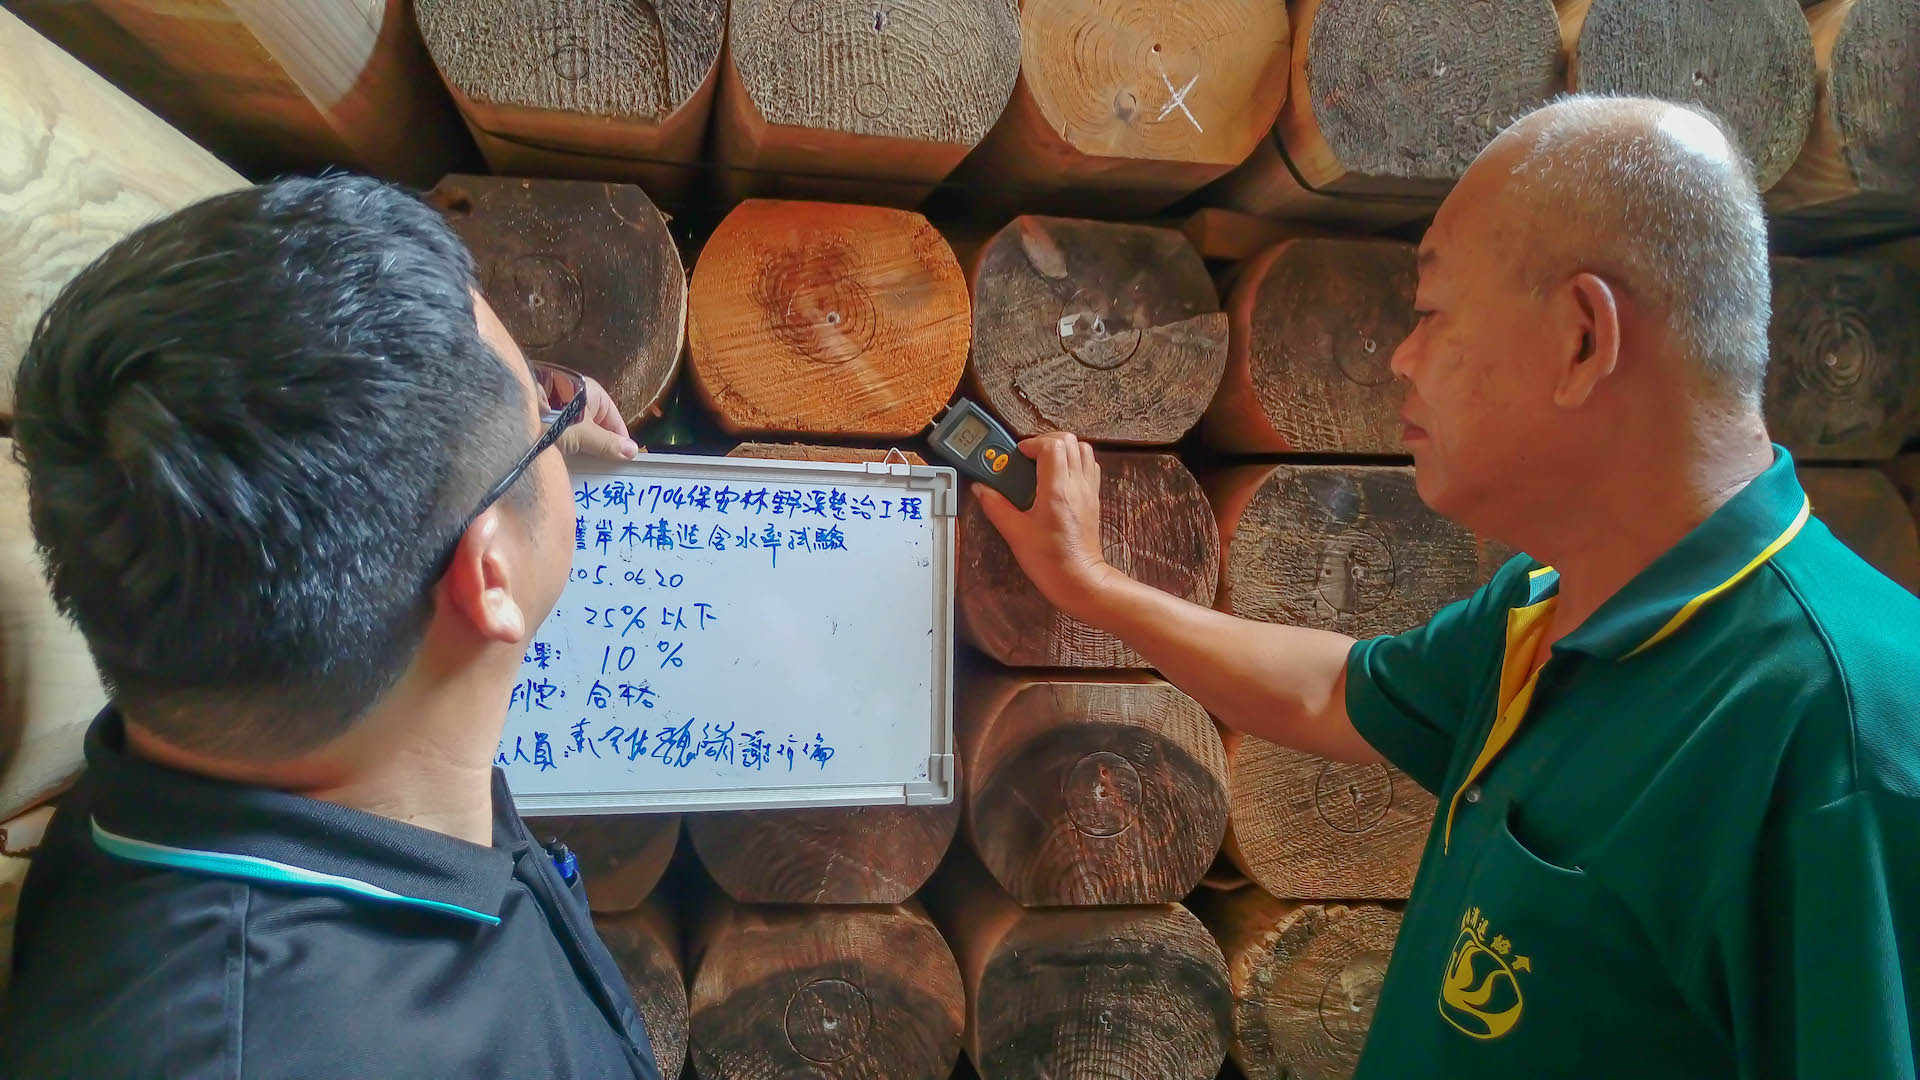 水鄉1704保安林野溪整治工程
護岸木構造含水率試驗
105.06.20
: 25%以下
果: 10%
判定: 合格
人員:
協會